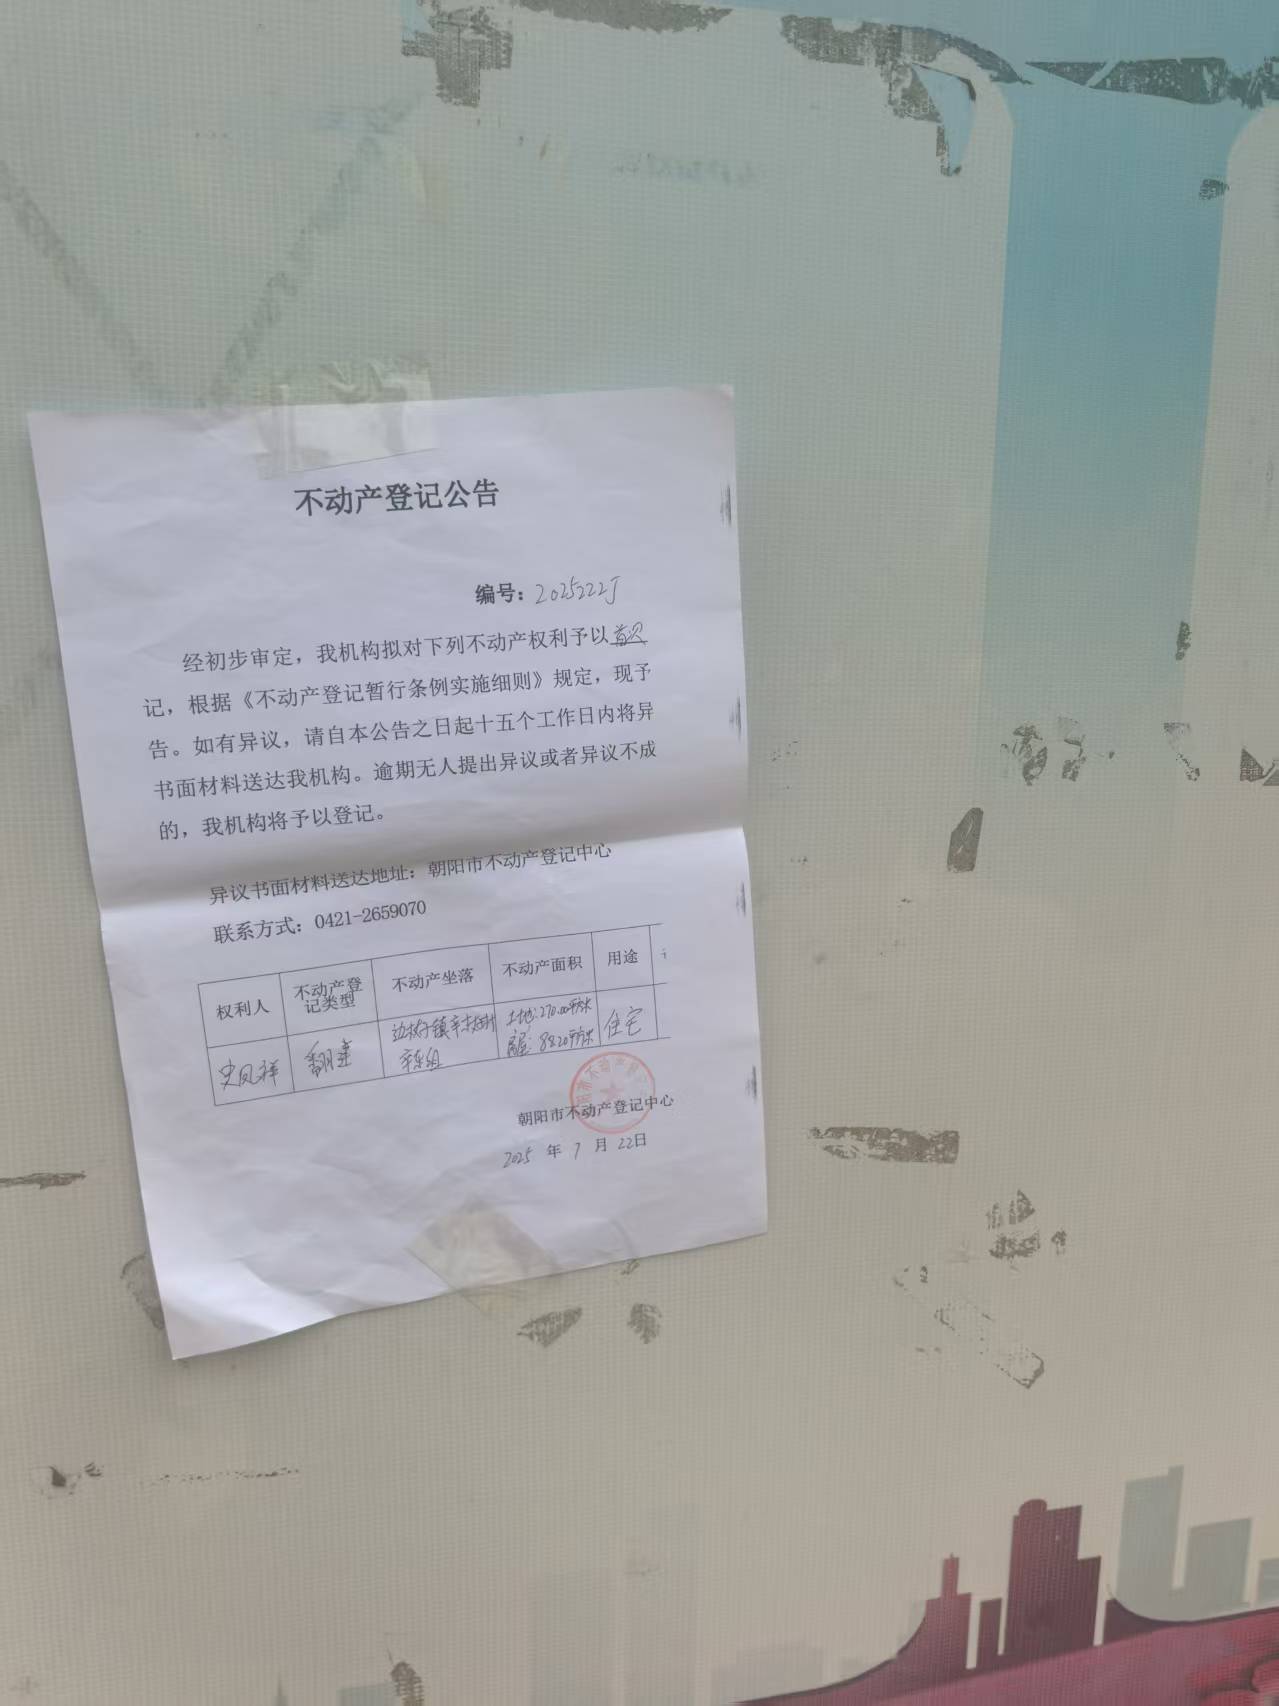 不动产登记公告
编号：2025222J
经初步审定，我机构拟对下列不动产权利予以首次
记，根据《不动产登记暂行条例实施细则》规定，现予
告。如有异议，请自本公告之日起十五个工作日内将异
书面材料送达我机构。逾期无人提出异议或者异议不成
的，我机构将予以登记。
异议书面材料送达地址：朝阳市不动产登记中心
联系方式：0421-2659070
权利人 不动产登记类型 不动产坐落 不动产面积 用途
史凤祥 翻建 边杖子镇 土地：270.00平方米 住宅
辛东组 房屋：88.20平方米
朝阳市不动产登记中心
2025 年 7 月 22日